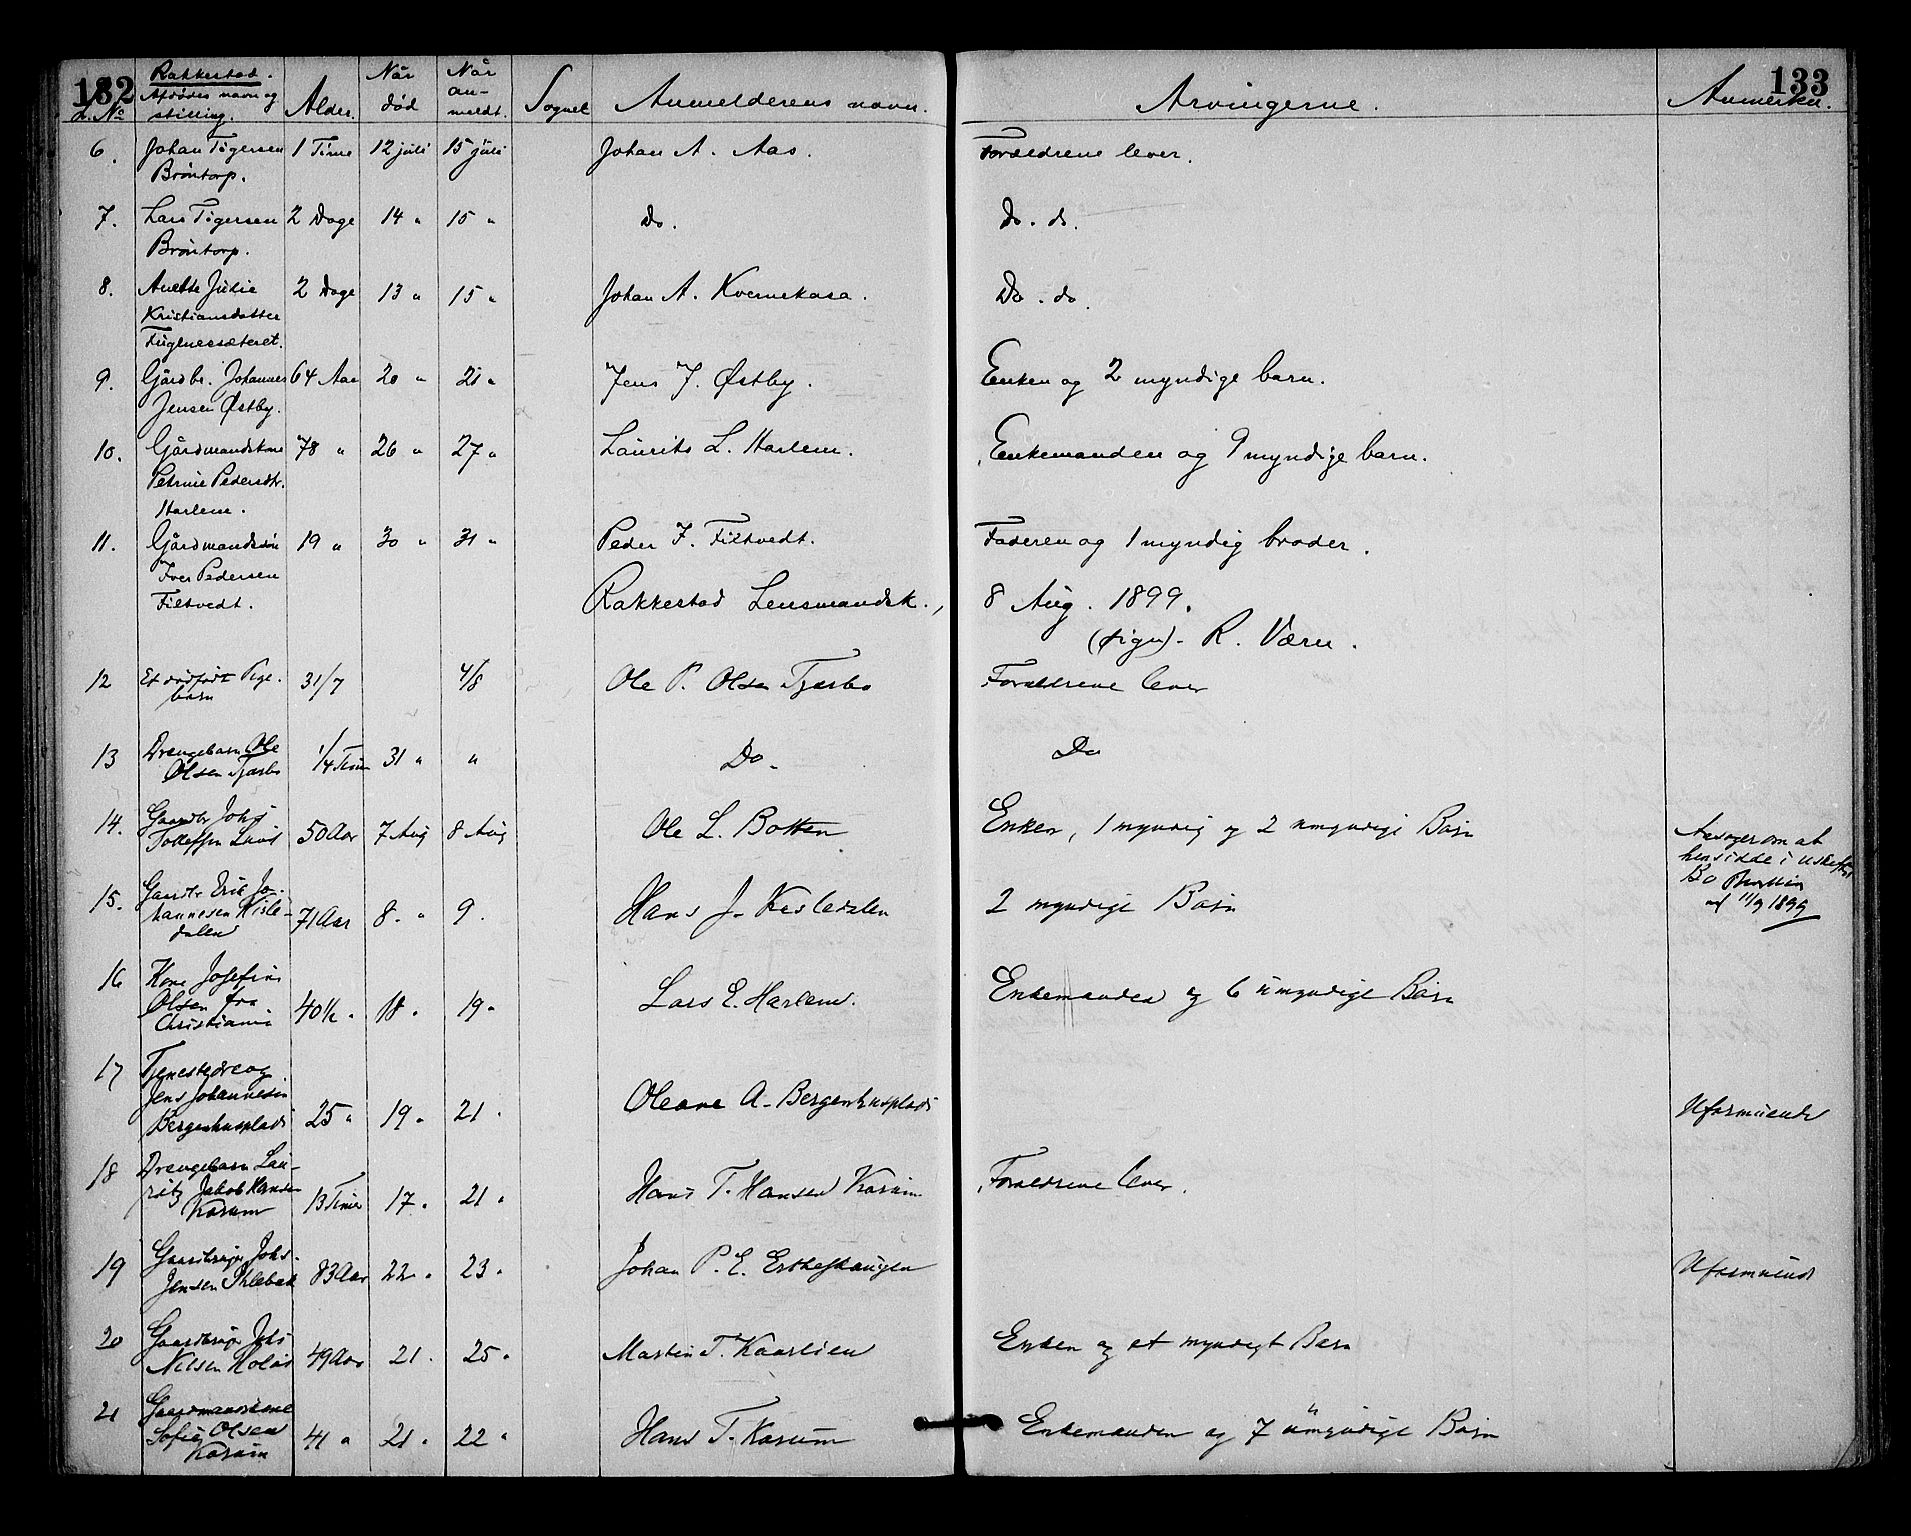 132 133
L. No Rakkestad. Afdødes navn og stilling. Alder. Når død Når anmeldt. Sognet Anmelderens navn. Arvingerne. Anmerkn.
6. Johan Tigersen 1 Time 12 juli 15 juli Johan A. Aas. Forældrene lever.
Bröntorp.
7. Lars Tigersen 2 Dage 14 " 15 " Do. Do. do.
Bröntorp.
8. Anette Julie 2 Dage 13 " 15 " Johan A. Kvernekasa. Do. do.
Kristiansdatter
9. Gårdbr. Johannes 64 Aar 20 " 21 " Jens J. Østby. Enken og 2 myndige barn.
Jensen Østby.
10. Gårdmandskone 78 " 26 " 27 " Laurits L. Harlem. Enkemanden og 9 myndige barn.
Petrine Pedersdtr.
Harlem.
11. Gårdmandssön 19 " 30 " 31 " Peder J. Filtvedt. Faderen og 1 myndig broder.
Iver Pedersen
Filtvedt.
Rakkestad Lensmandsk., 8 Aug. 1899.
(sign). R. Værn.
12 Et dødfödt Pige- 31/7 4/8 Ole P. Olsen Tjærbo Forældrene lever
barn
13 Drengebarn Ole 1/4 Time 31 " " Do. Do
Olsen Tjærbo
14. Gaardbr Johs 50 Aar 7 Aug 8 Aug Ole L. Botten Enken, 1 myndig og 2 umyndige Børn
Tollefsen Lund
Ansøger om at
hensidde i uskiftet
Bo
11/9 1899
15. Gaardbr Erik Jo- 71 Aar 8. " 9. Hans J. Kisledalen 2 myndige Børn
hannesen Kisle-
dalen
16 Kone Josefine 40 1/2 " 18 " 19 " Lars E. Harlem. Enkemanden og 6 umyndige Børn
Olsen fra
Christiania
17 Tjenestedreng
Jens Johannesen
Bergenhusplads 25 " 19 " 21 . Oleane A. Bergenhusplads Uformuende
18 Drengebarn Lau-
ritz Jakob Hansen 13 Timer 17 " 21 " Hans T. Hansen Kasum Forældrene lever.
Kasum
19 Gaardbruger Johs.
Jensen 83 Aar 22 " 23 " Johan P. E. Uformuende
20 Gaardbruger Johs
Nilsen 49 Aar 21 . 25 " Martin T. Kaarlien Enken og et myndigt Barn
21 Gaardmandskone
Sofie Olsen 41 " 21 " 22 " Hans T. Kasum Enkemanden og 7 umyndige Børn
Kasum